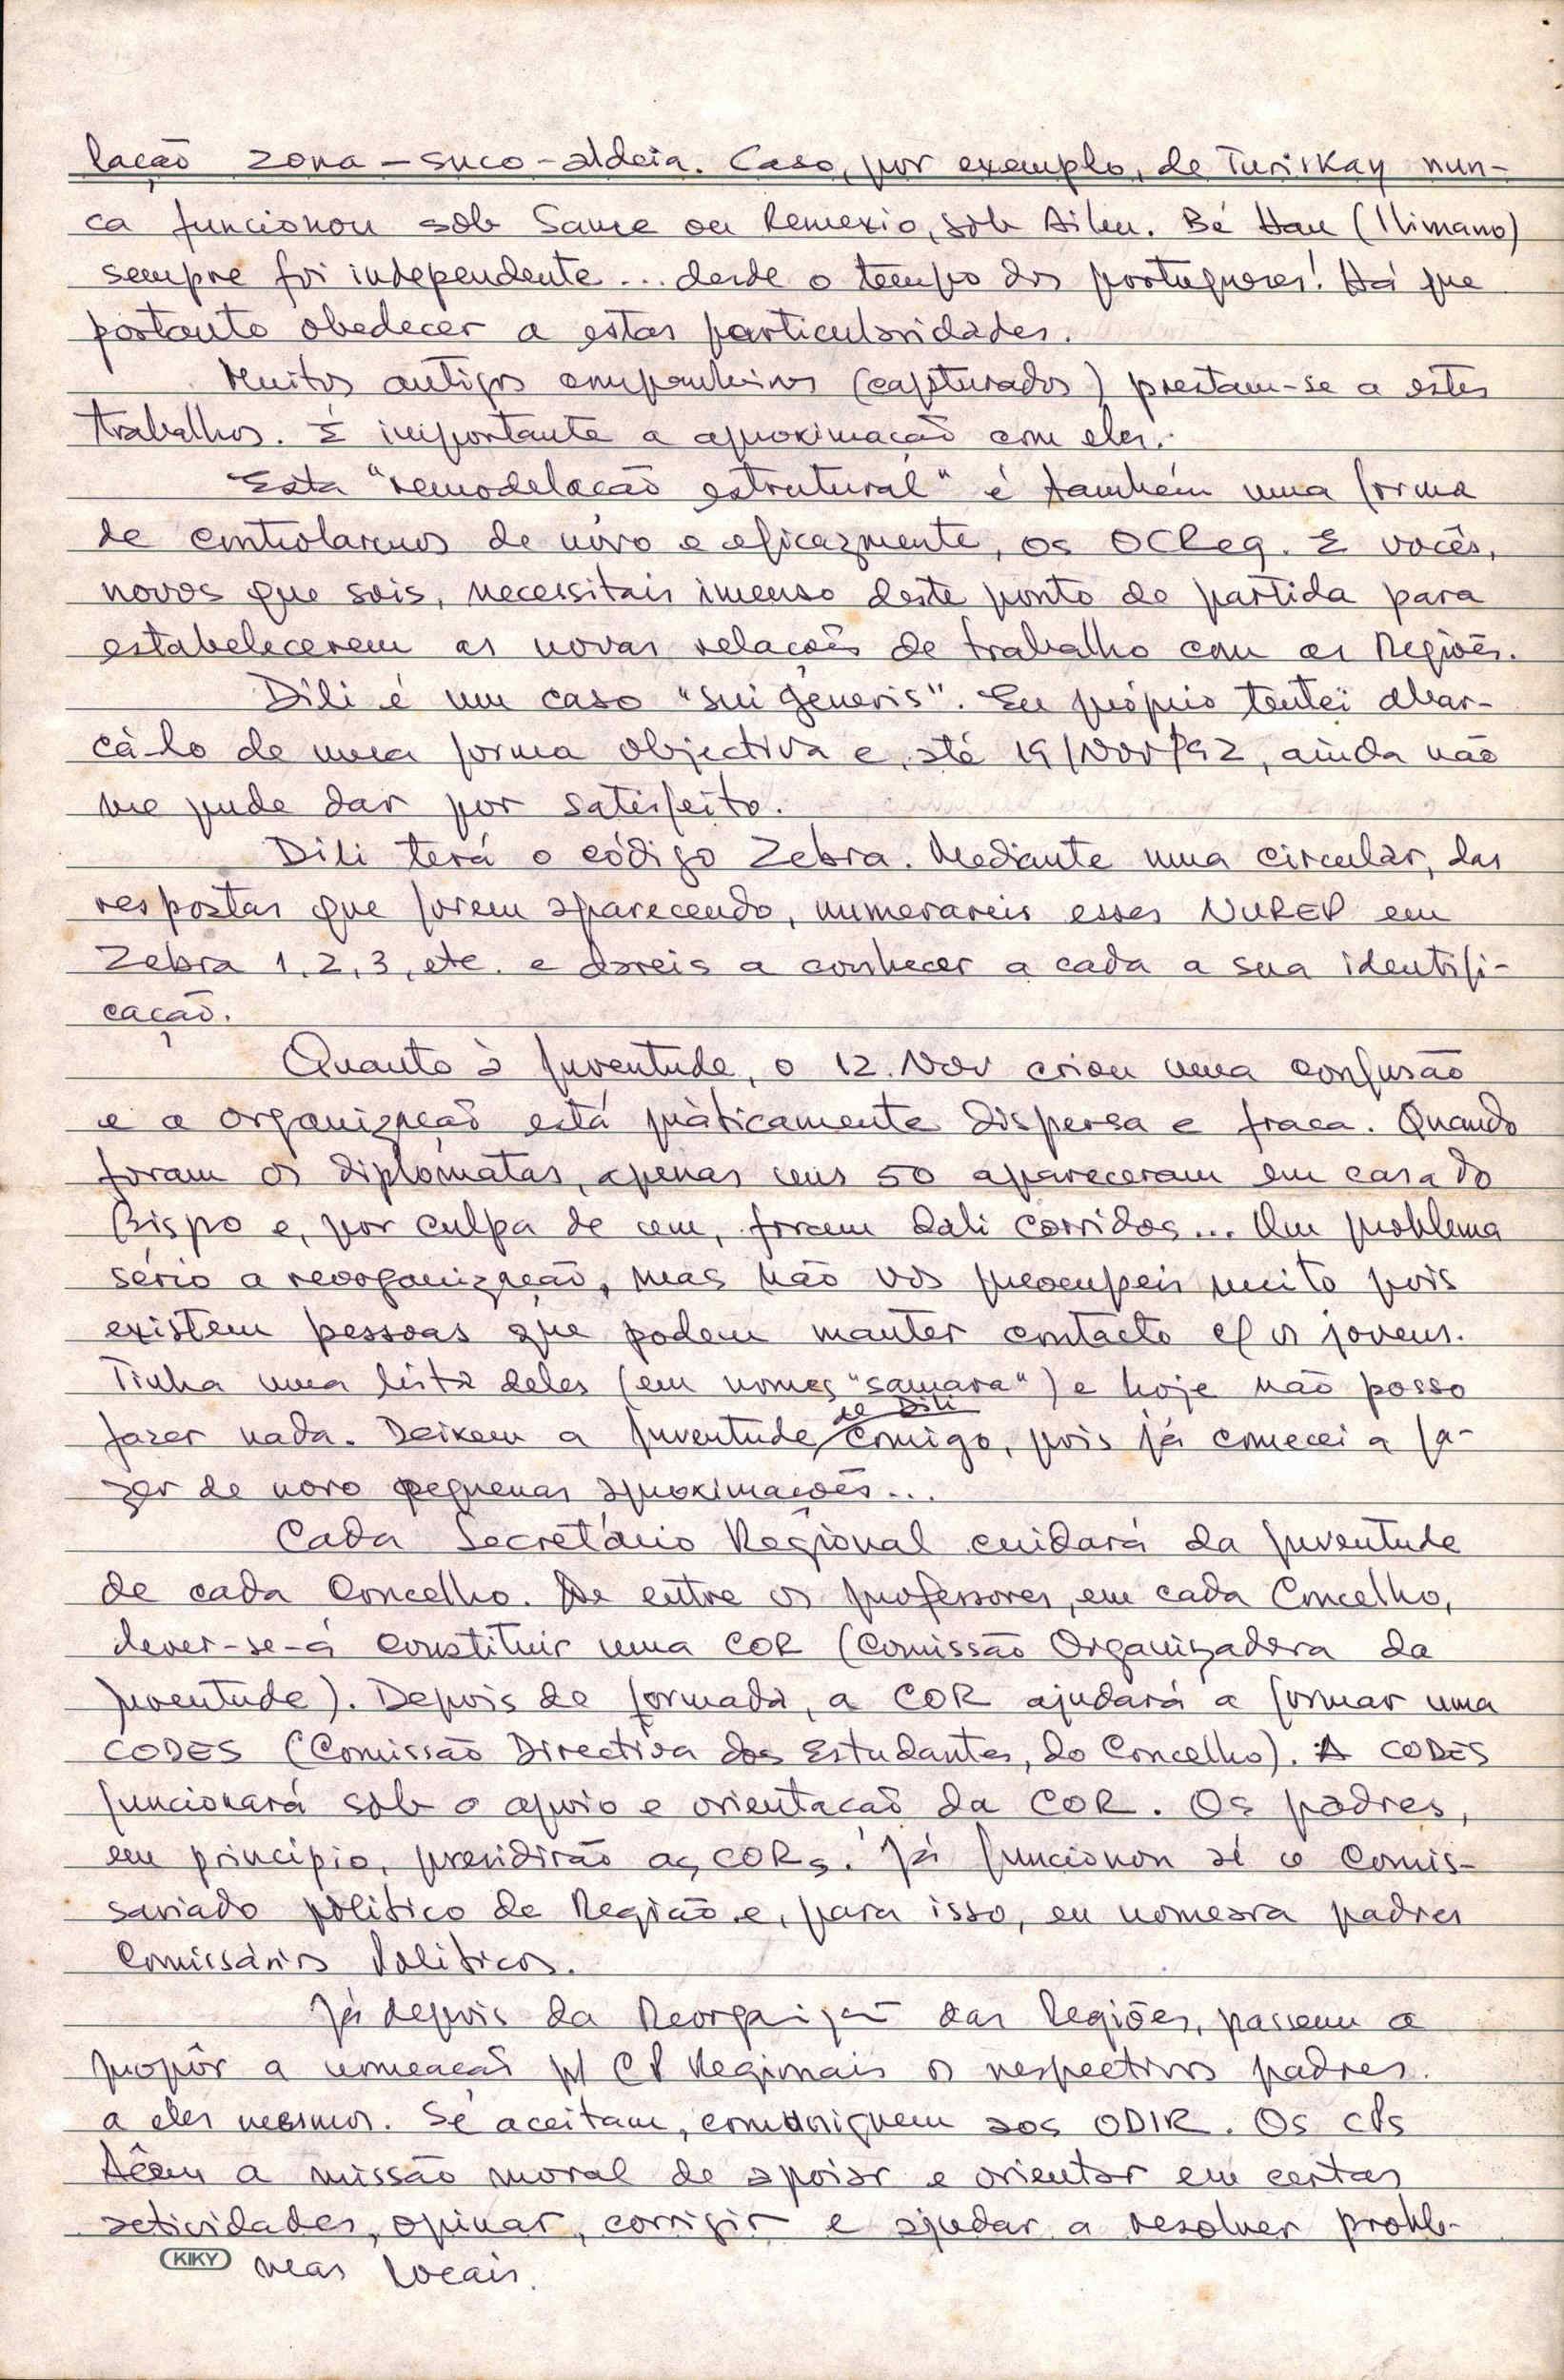 lação zona-suco-aldeia. Caso, por exemplo, de Turiskay nun-
ca funcionou sob Same ou Remexio, sob Aileu. Bé Hau (Ilimano)
sempre foi independente... desde o tempo dos portugueses! Há que
portanto obedecer a estas particularidades.
Muitos antigos companheiros (capturados) prestam-se a estes
trabalhos. É importante a aproximação com eles.
Esta "remodelação estrutural" é também uma forma
de controlarmos de novo e eficazmente, os OCReg. E vocês,
novos que sois, necessitais imenso deste ponto de partida para
estabelecerem as novas relações de trabalho com as Regiões.
Dili é um caso "sui géneris". Eu próprio tentei abar-
cá-lo de uma forma objectiva e, até 19/Nov/92, ainda não
me pude dar por satisfeito.
Dili terá o código Zebra. Mediante uma circular, das
respostas que forem aparecendo, numerareis esses NUREP em
Zebra 1, 2, 3, etc. e dareis a conhecer a cada a sua identifi-
cação.
Quanto à Juventude, o 12. Nov criou uma confusão
e a organização está pràticamente dispersa e fraca. Quando
foram os diplomatas, apenas uns 50 apareceram em casa do
Bispo e, por culpa de um, foram dali corridos... Um problema
sério a reorganização, mas não vos preocupeis muito pois
existem pessoas que podem manter contacto c/ os jovens.
Tinha uma lista deles (em nomes "samara") e hoje não posso
fazer nada. Deixem a Juventude de Dili comigo, pois já comecei a fa-
zer de novo pequenas aproximações...
Cada Secretário Regional cuidará da Juventude
de cada Concelho. De entre os professores, em cada Concelho,
dever-se-á constituir uma COR (Comissão Organizadora da
Juventude). Depois de formada, a COR ajudará a formar uma
CODES (Comissão Directiva dos Estudantes, do Concelho). A CODES
funcionará sob o apoio e orientação da COR. Os padres,
em princípio, presidirão as CORs. Já funcionou aí o Comis-
sariado político de Região e, para isso, eu nomeara padres
Comissários Políticos.
Já depois da Reorganização das Regiões, passem a
propôr a nomeação p/ CP Regionais os respectivos padres
a eles mesmos. Se aceitam, comuniquem aos ODIR. Os CPs
têem a missão moral de apoiar e orientar em certas
actividades, opinar, corrigir e ajudar a resolver proble-
mas locais.
KIKY